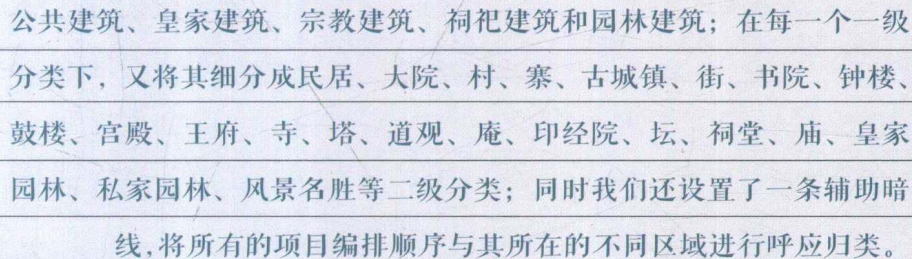 公共建筑、皇家建筑、宗教建筑、祠祀建筑和园林建筑；在每一个一级
分类下，又将其细分成民居、大院、村、寨、古城镇、街、书院、钟楼、
鼓楼、宫殿、王府、寺、塔、道观、庵、印经院、坛、祠堂、庙、皇家
园林、私家园林、风景名胜等二级分类；同时我们还设置了一条辅助暗
线,将所有的项目编排顺序与其所在的不同区域进行呼应归类。